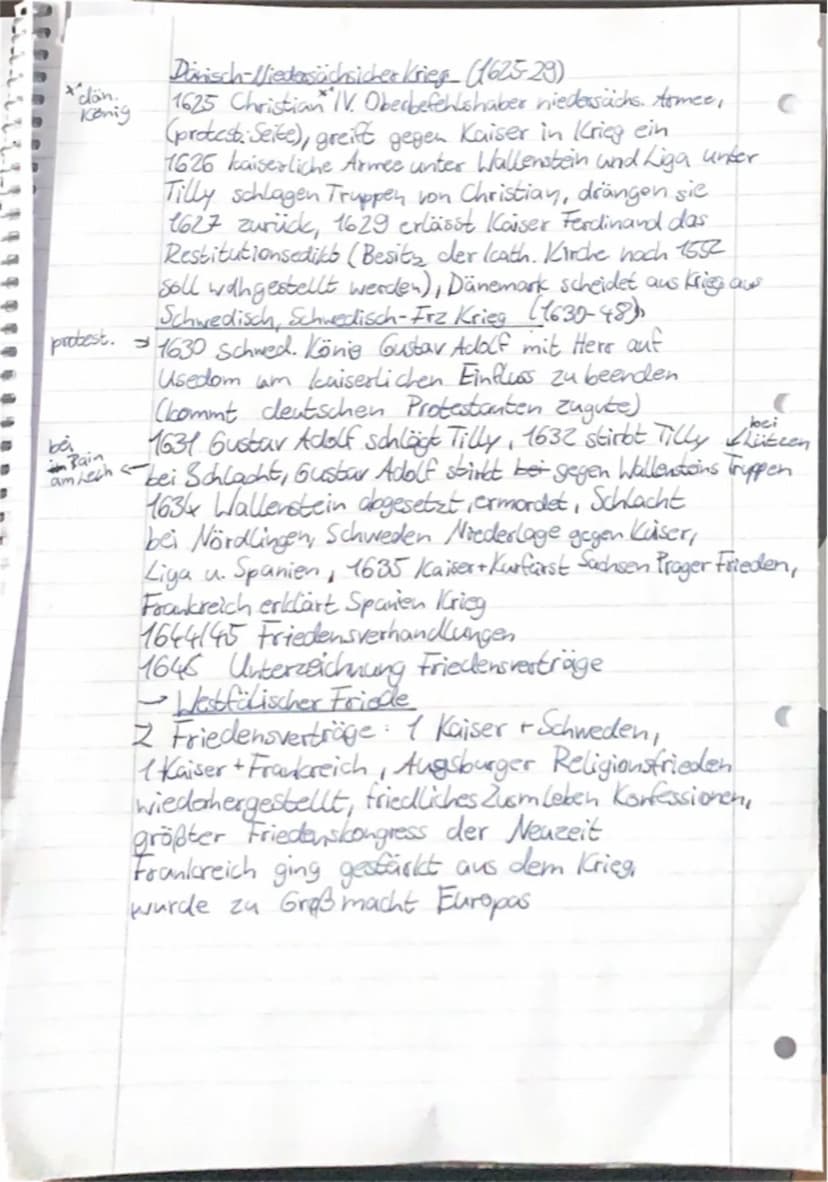 Dänisch-Niedersächsicher Krieg (1625-29)
x" dän.
König
1625 Christian x" IV. Oberbefehlshaber niedersächs. Armee,
(protest. Seite), greift gegen Kaiser in Krieg ein
1626 kaiserliche Armee unter Wallenstein und Liga unter
Tilly schlagen Truppen von Christian, drängen sie
1627 zurück, 1629 erlässt Kaiser Ferdinand das
Restitutionsedikt (Besitz der kath. Kirche nach 1552
soll wdhgestellt werden), Dänemark scheidet aus Krieg aus
Schwedisch, Schwedisch-Frz Krieg (1630-48)
protest. → 1630 schwed. König Gustav Adolf mit Herr auf
Usedom um kaiserlichen Einfluss zu beenden
(kommt deutschen Protestanten zugute)
1631 Gustav Adolf schlägt Tilly, 1632 stirbt Tilly ↙ bei Lützen
bei
in Rain
am Lech ← bei Schlacht, Gustav Adolf stirbt bei gegen Wallensteins Truppen
1634 Wallenstein abgesetzt, ermordet, Schlacht
bei Nördlingen, Schweden Niederlage gegen Kaiser,
Liga u. Spanien, 1635 Kaiser + Kurfürst Sachsen Prager Frieden,
Frankreich erklärt Spanien Krieg
1644/45 Friedensverhandlungen
Unterzeichnung Friedensverträge
→ Westfälischer Friede
2 Friedensverträge: 1 Kaiser + Schweden,
1 Kaiser + Frankreich, Augsburger Religionsfrieden
wiederhergestellt, friedliches Zusmleben Konfessionen,
größter Friedenskongress der Neuzeit
Frankreich ging gestärkt aus dem Krieg,
wurde zu Großmacht Europas